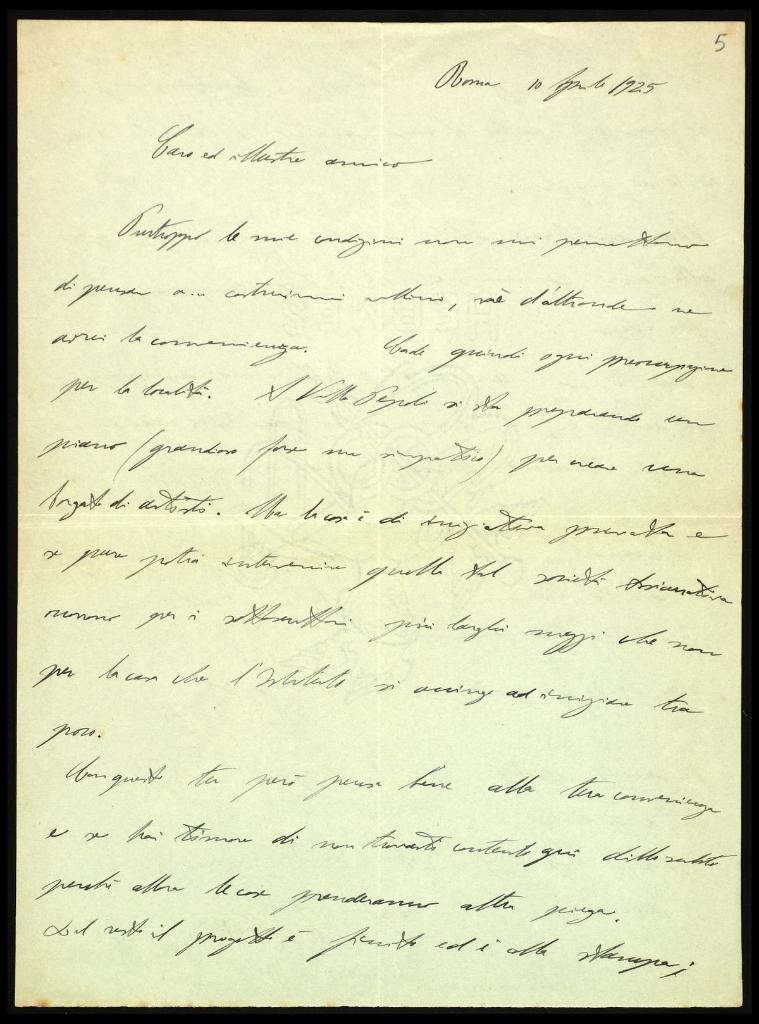 5
Roma 10 Aprile 1925
Caro ed illustre amico
Purtroppo le mie condizioni non mi permettono
di pensare a costruirmi, nè d'altronde ne
avrei la convenienza. Cade quindi ogni preoccupazione
per la località. A Villa Pepoli si sta preparando un
piano (grandioso forse ma simpatico) per creare una
borgata di artisti. Ma la cosa è di iniziativa privata e
se pure potrà intervenire quella tal società
per i più larghi mezzi che non
per la casa che l'Istituto si accinge ad iniziare tra
poco.
Con questo tu però pensa bene alla tua convenienza
e se hai timore di non trovarti contento qui dillo subito
perchè allora le cose prenderanno altra piega.
Del resto il progetto è finito ed è alla stampa;